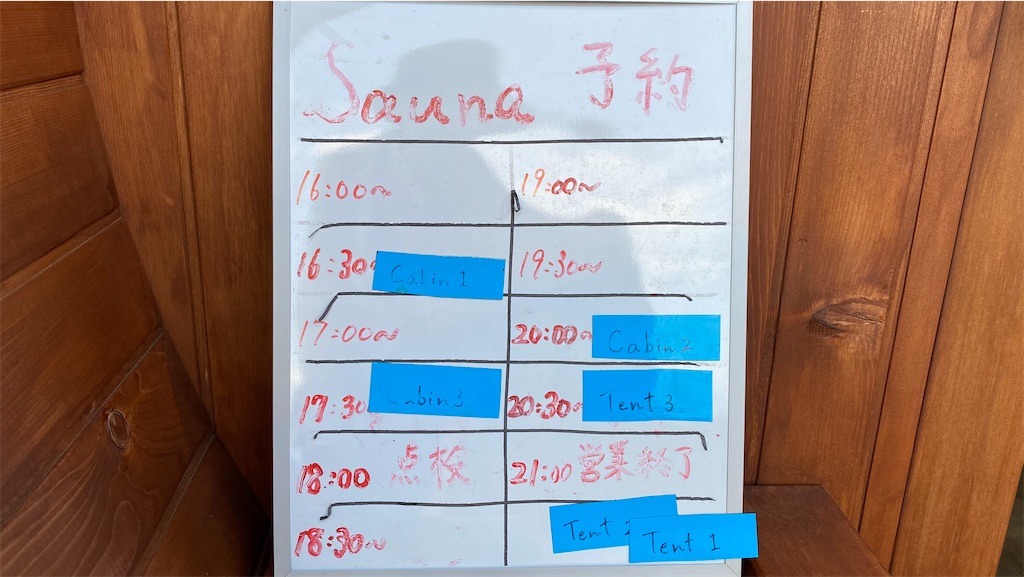 Sauna 予約
16:00~ 19:00~
16:30 Cabin 1 19:30~
17:00~ 20:00~ Cabin 2
17:30 Cabin 3 20:30~ Tent 3
18:00 点検 21:00 営業終了
18:30~ Tent 2 Tent 1